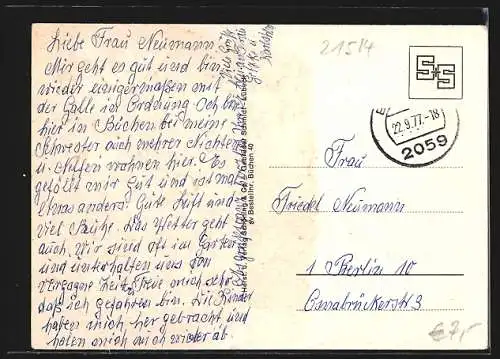 Liebe Frau Neumann.
Mir geht es gut und bin
wieder einigermaßen mit
der Galle in Ordnung Ich bin
hier in Büchen bei meine
Schwester auch mehrer Nichten
u. Nefen wohnen hier. Es
gefällt mir Gut und ist mal
etwas anders. Gute Luft und
viel Ruhe. Das Wetter geht
auch. Wir sind oft im Garten
und unterhalten uns von
vergangne Zeit, freue mich sehr
daß ich gefahren bin. Die Kinder
haben mich her gebracht und
holen mich auch wieder ab.
Bestellnr. Büchen 40
21514
22.9.77.-18
2059
Frau
Friedel Neumann
1 Berlin 10
Osnabrückerstr 3
€7,-